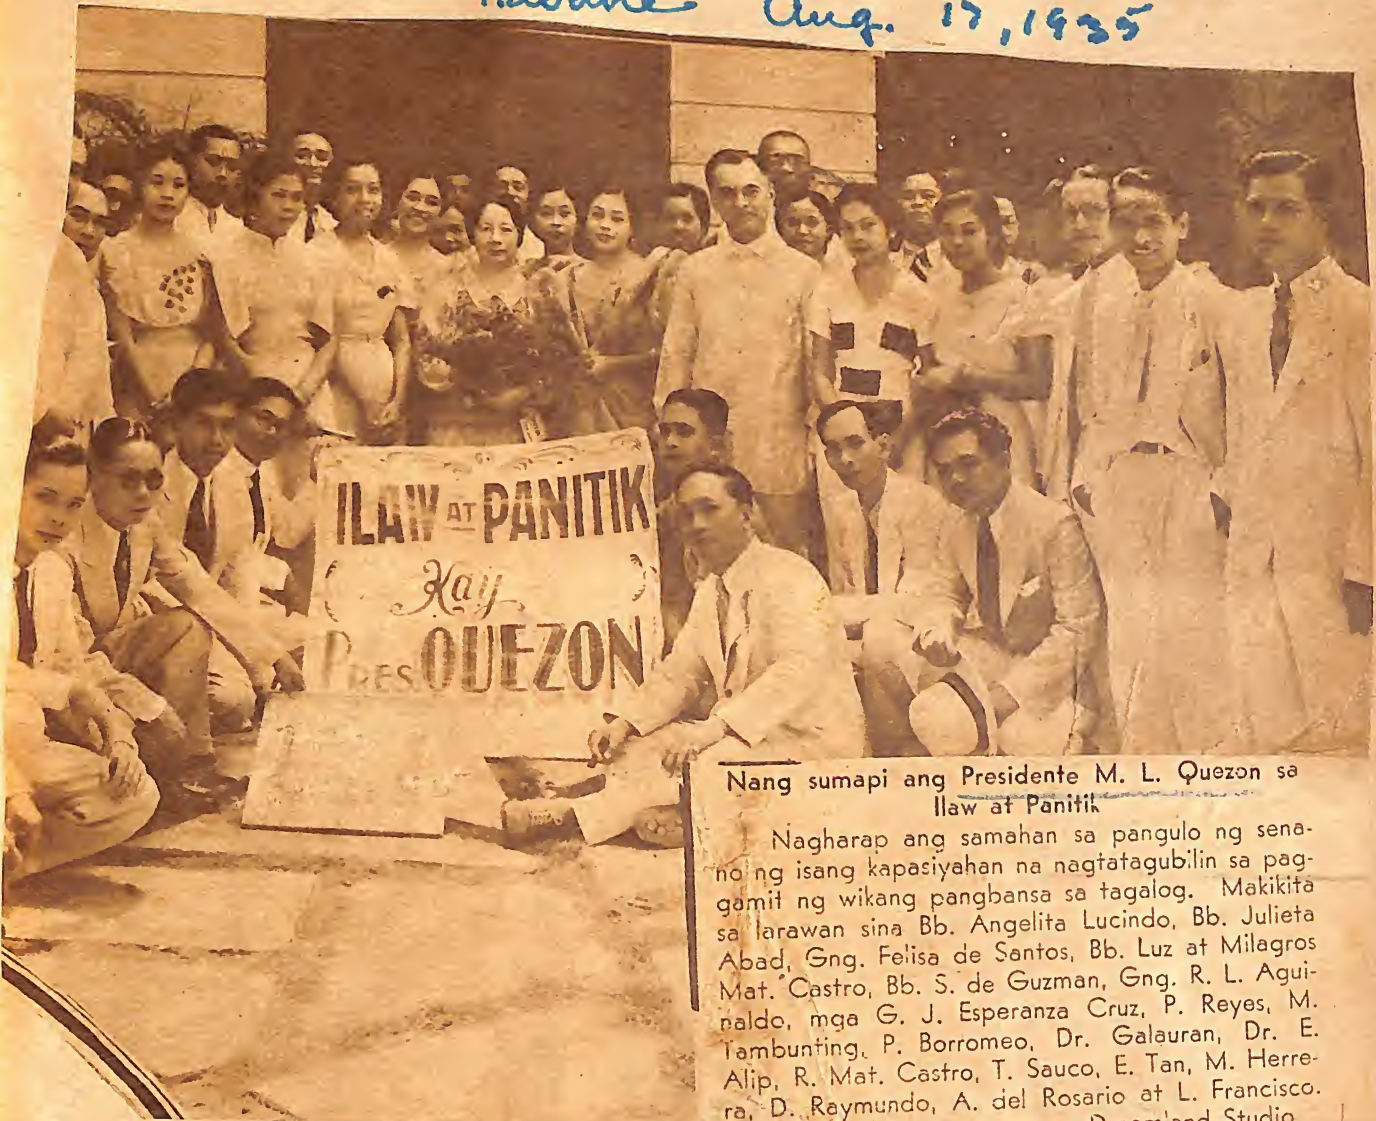 Aug. 17, 1935
ILAW AT PANITIK
Kay
PRES. QUEZON
Nang sumapi ang Presidente M. L. Quezon sa
Ilaw at Panitik
Nagharap ang samahan sa pangulo ng sena-
no ng isang kapasiyahan na nagtatagubilin sa pag-
gamit ng wikang pangbansa sa tagalog. Makikita
sa larawan sina Bb. Angelita Lucindo, Bb. Julieta
Abad, Gng. Felisa de Santos, Bb. Luz at Milagros
Mat. Castro, Bb. S. de Guzman, Gng. R. L. Agui-
naldo, mga G. J. Esperanza Cruz, P. Reyes, M.
Tambunting, P. Borromeo, Dr. Galauran, Dr. E.
Alip, R. Mat. Castro, T. Sauco, E. Tan, M. Herre-
ra, D. Raymundo, A. del Rosario at L. Francisco.
Studio